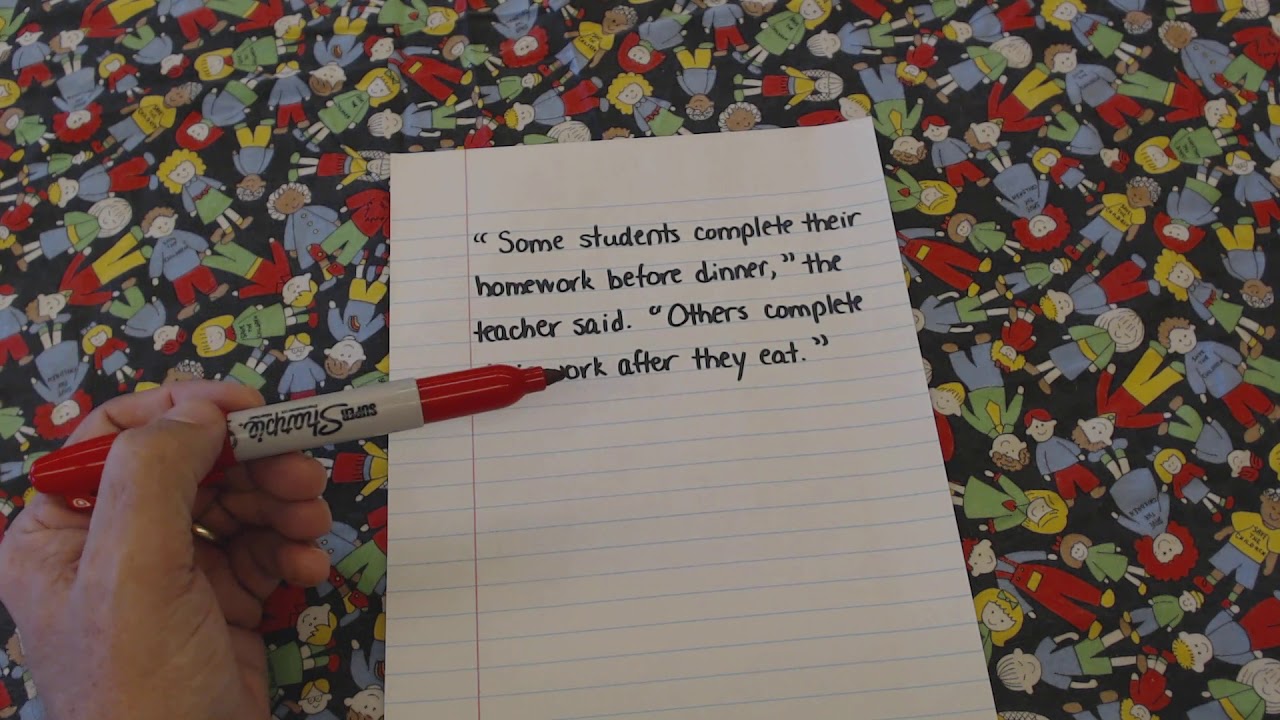 “ Some students complete their
homework before dinner,” the
teacher said. “Others complete
work after they eat.”
SUPER Sharpie.